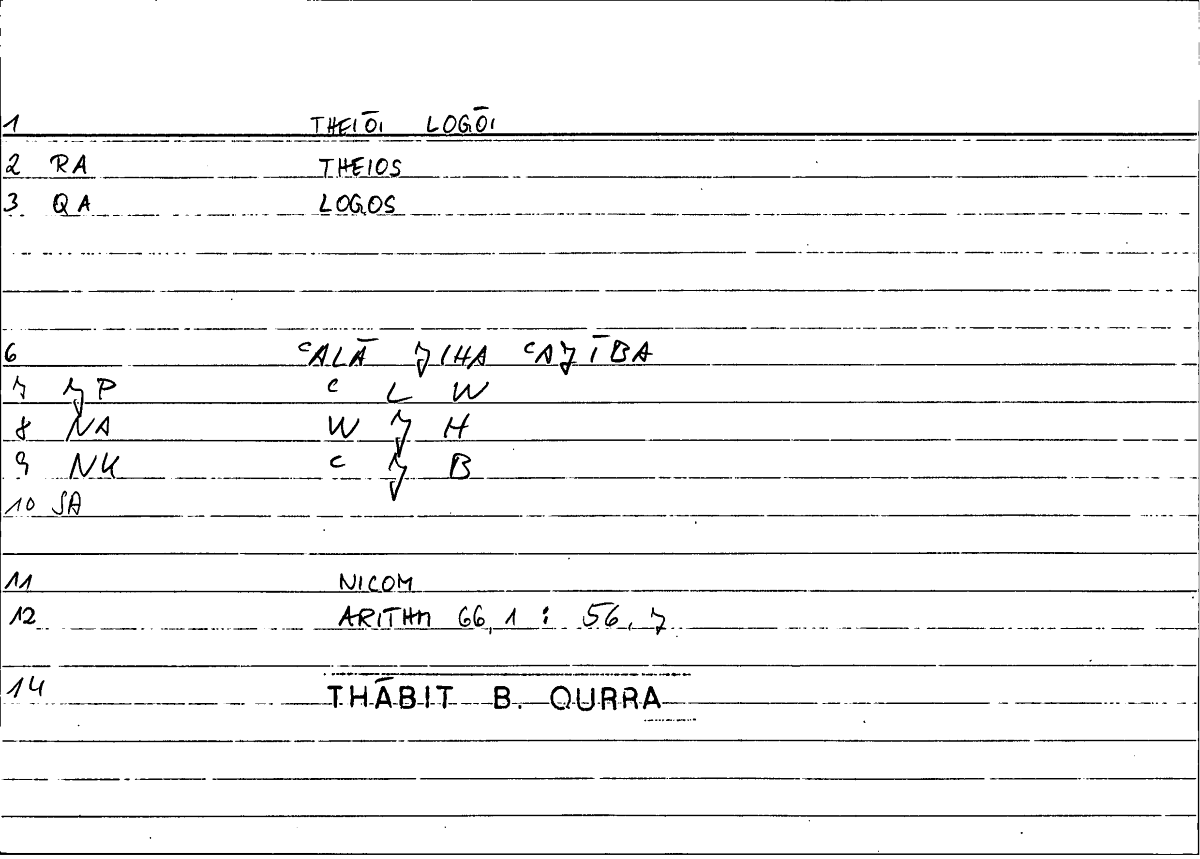 1 THEIŌI LOGŌI
2 RA THEIOS
3 QA LOGOS
6 ᶜALĀ 7IHA ᶜA7ĪBA
7 7P ᶜ L W
8 NA W 7 H
9 NK ᶜ 7 B
10 SA
11 NICOM
12 ARITHM 66,1 : 56,7
14 THĀBIT B. QURRA